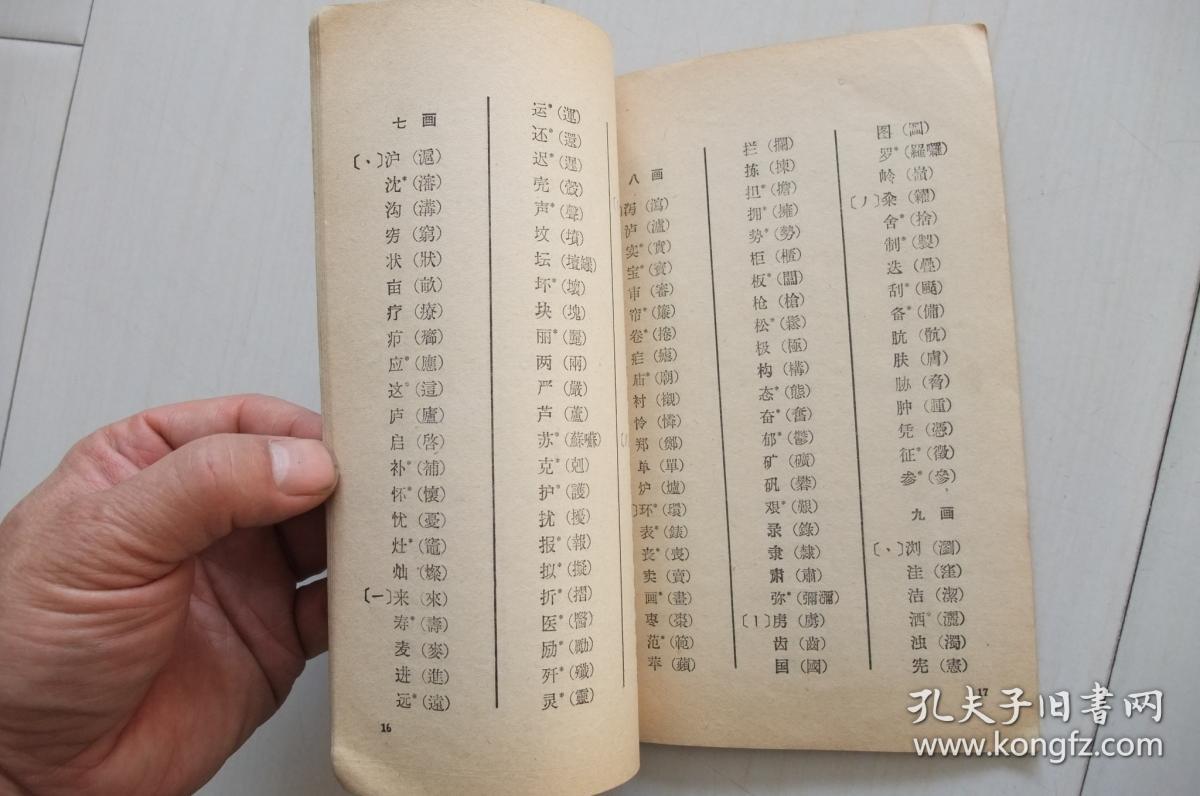 七 画
〔丶〕沪（滬）
沈*（瀋）
沟（溝）
穷（窮）
状（狀）
亩（畝）
疗（療）
疖（癤）
应*（應）
这°（這）
庐（廬）
启（啓）
补*（補）
怀*（懷）
忧（憂）
灶*（竈）
灿（燦）
〔一〕来（來）
寿*（壽）
麦（麥）
进（進）
远*（遠）
16
运*（運）
还*（還）
迟*（遲）
壳（殼）
声*（聲）
坟（墳）
坛（壇罎）
坏*（壞）
块（塊）
丽*（麗）
两（兩）
严（嚴）
芦（蘆）
苏*（蘇囌）
克*（剋）
护*（護）
扰（擾）
报*（報）
拟*（擬）
折*（摺）
医*（醫）
励*（勵）
歼*（殲）
灵*（靈）
八 画
泻（瀉）
泸（瀘）
实*（實）
宝*（寶）
审（審）
帘*（簾）
卷*（捲）
疟（瘧）
庙*（廟）
衬（襯）
怜（憐）
郑（鄭）
单（單）
炉（爐）
〕环*（環）
表*（錶）
丧*（喪）
卖（賣）
画*（畫）
枣（棗）
范*（範）
苹（蘋）
拦（攔）
拣（揀）
担*（擔）
拥*（擁）
势*（勢）
柜（櫃）
板*（闆）
枪（槍）
松*（鬆）
极（極）
构（構）
态*（態）
奋*（奮）
郁*（鬱）
矿（礦）
矾（礬）
艰*（艱）
录（錄）
隶（隸）
肃（肅）
弥*（彌瀰）
〔丨〕虏（虜）
齿（齒）
国（國）
图（圖）
罗*（羅囉）
岭（嶺）
〔丿〕籴（糴）
舍*（捨）
制*（製）
迭（疊）
刮*（颳）
备*（備）
肮（骯）
肤（膚）
胁（脅）
肿（腫）
凭（憑）
征*（徵）
参*（參）
九 画
〔丶〕浏（瀏）
洼（窪）
洁（潔）
洒*（灑）
浊（濁）
宪（憲）
17
孔夫子旧书网
www.kongfz.com